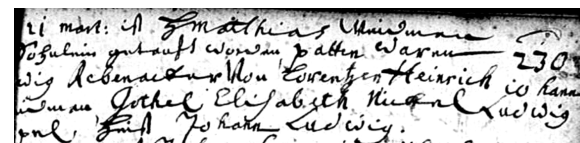 21 mart: ist H Matthias
Söhnlein getauft worden, patten waren 230
wig Rebenacker von Lorentzen Heinrich io hann
Gothel Elisabeth Nickel Ludwig
heist Johann Ludwig.